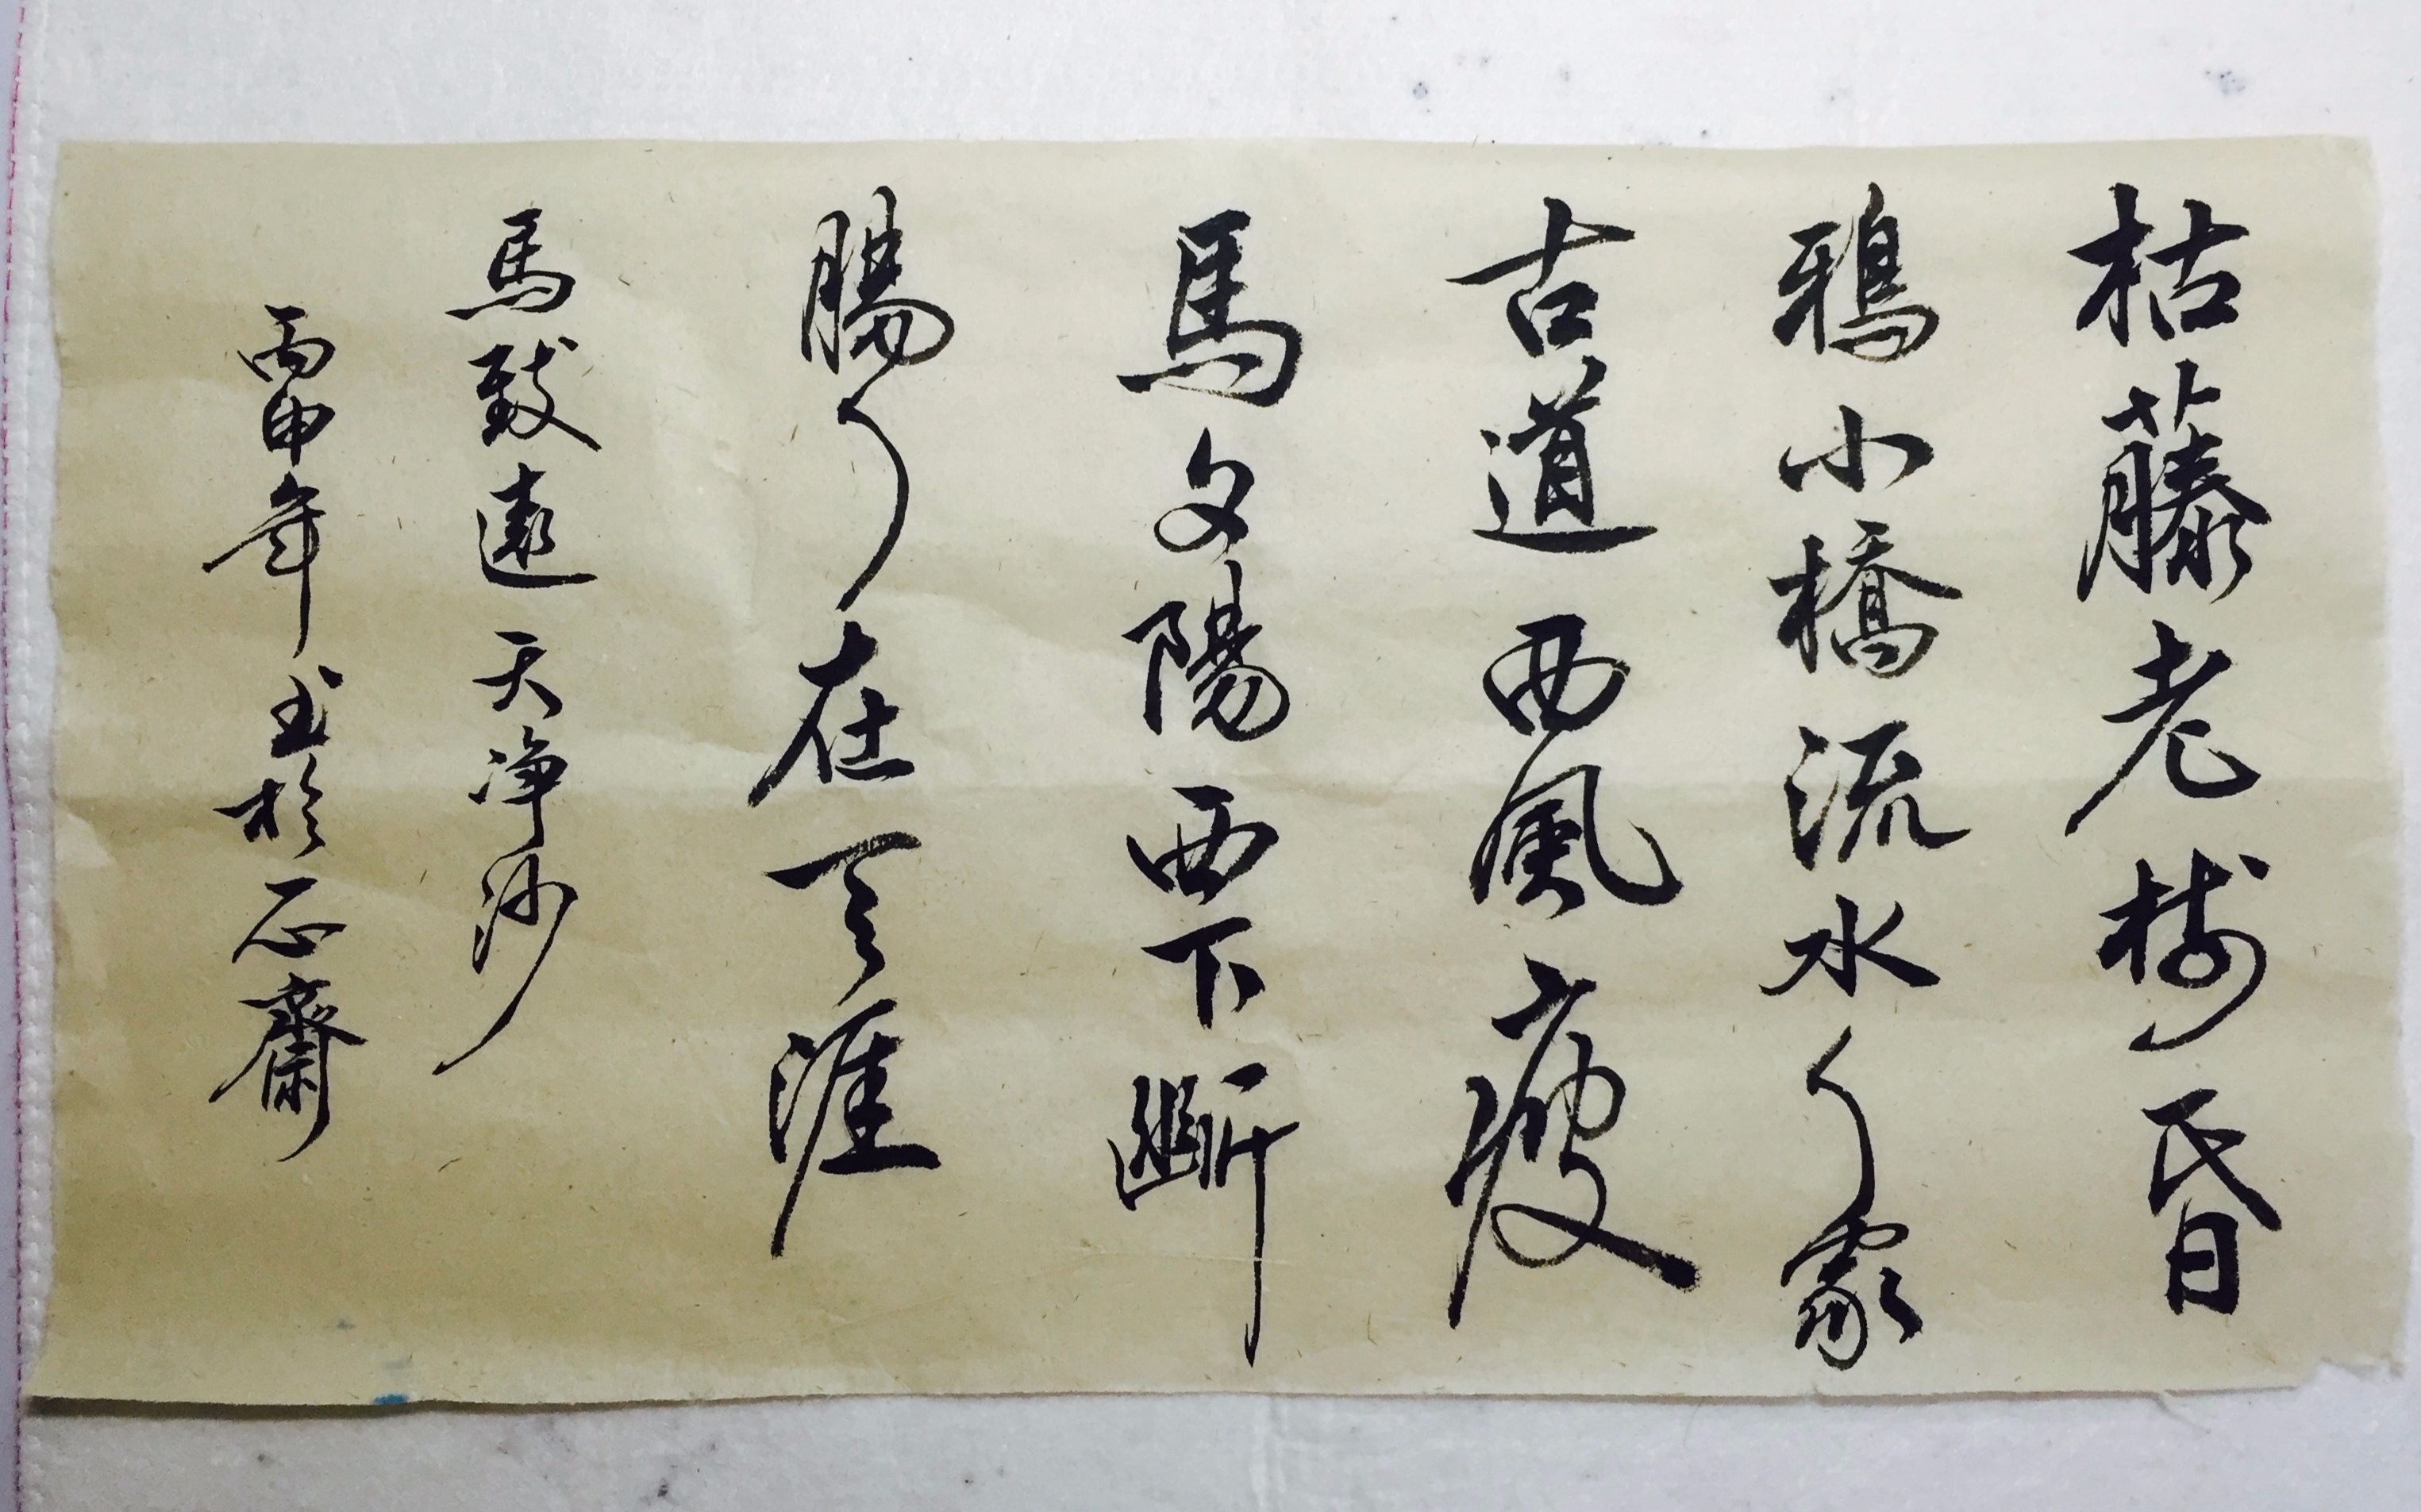 枯藤老樹昏
鴉小橋流水人家
古道西風瘦
馬夕陽西下斷
腸人在天涯
馬致遠天净沙
丙申年书於齋